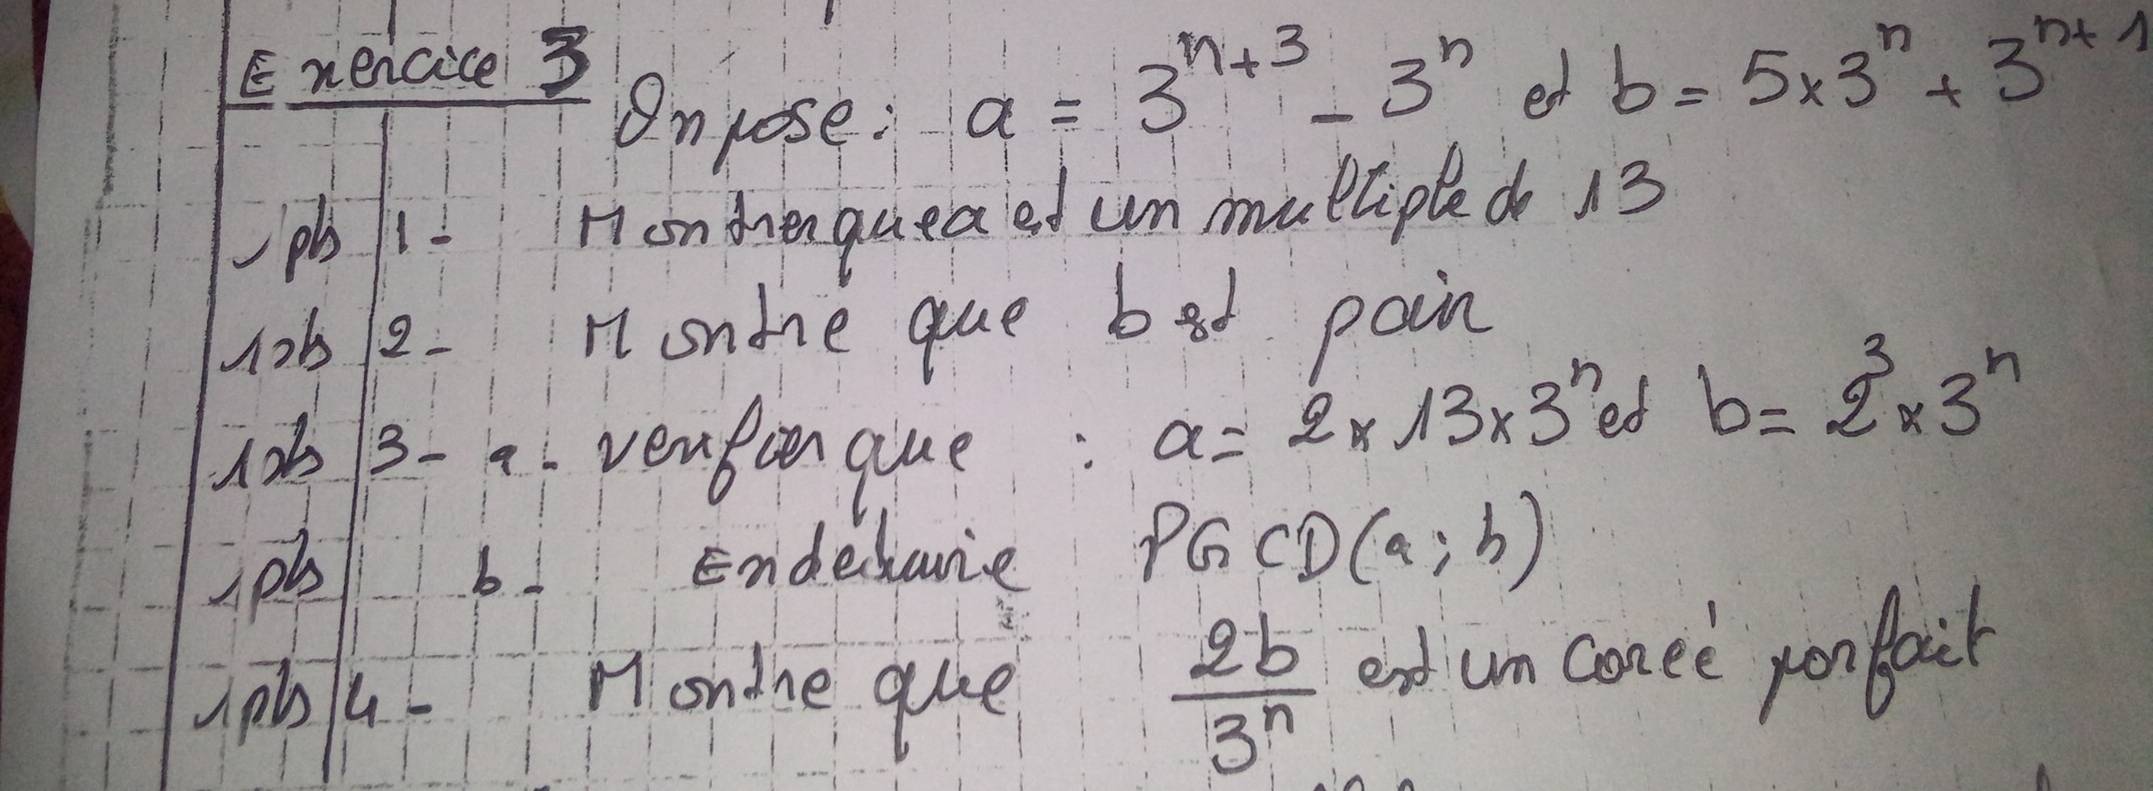 Exercice 3
On pose : a = 3^{n+3} - 3^n et b = 5×3^n + 3^{n+1}
1pts 1- Montrer que a est un multiple de 13
1pts 2- Montre que b est pair
1pts 3- a- verifier que : a = 2×13×3^n et b = 2^3×3^n
1pts b- En déduire PGCD(a;b)
1pts 4- Montre que 2b/3^n est un carré parfait